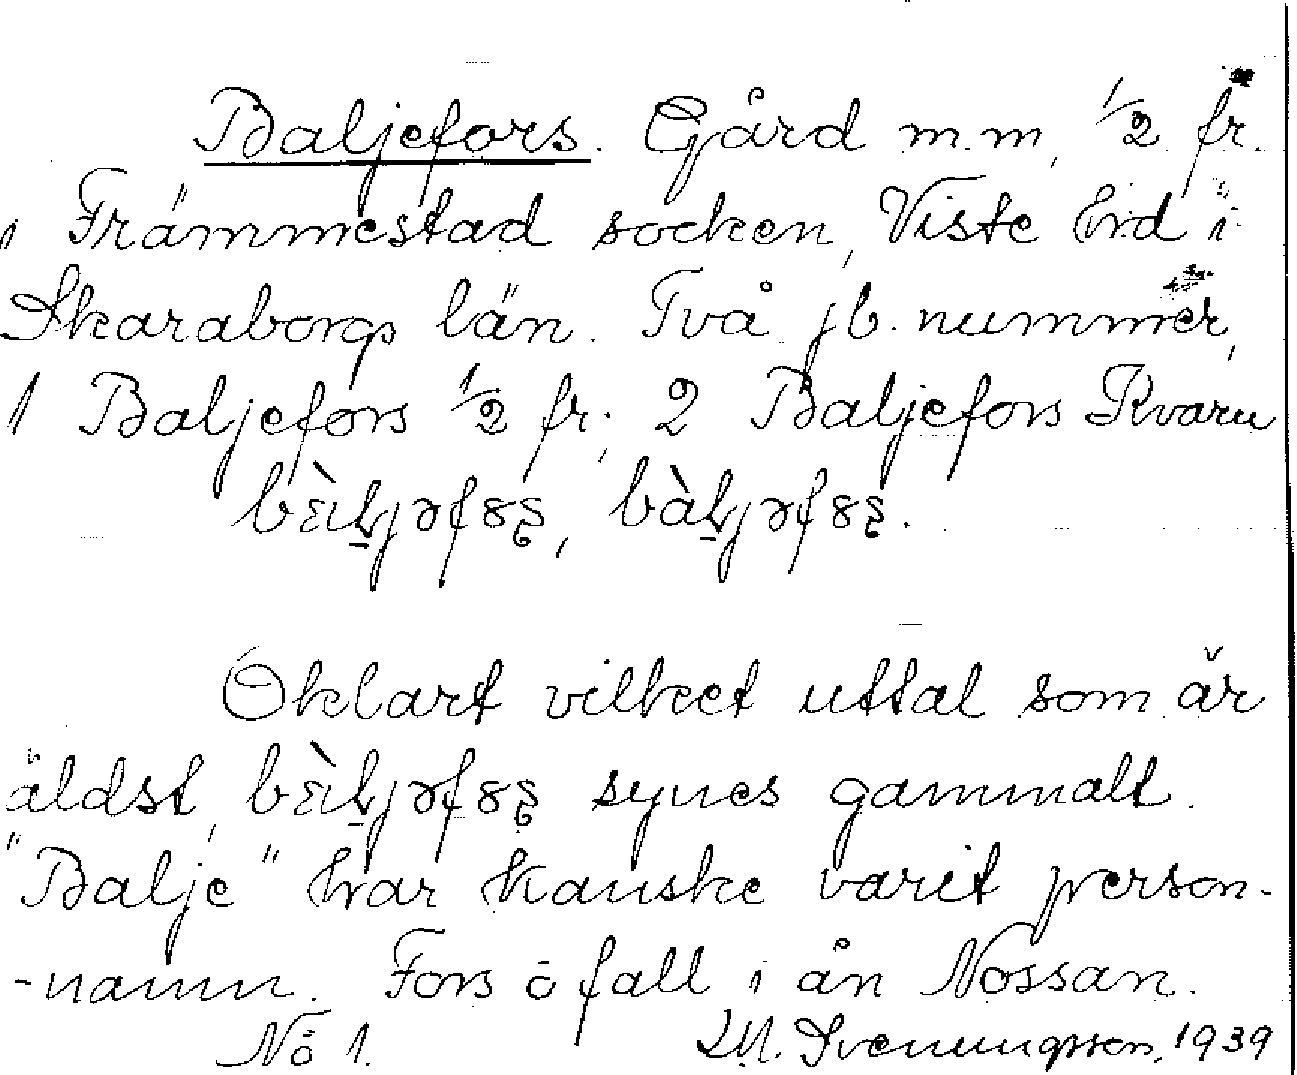 Baljefors. Gård m.m, 1/2 fr.
i Främmestad socken, Viste hrd i
Skaraborgs län. Två jb. nummer,
1 Baljefors 1/2 fr; 2 Baljefors Kvarn
Oklart vilket uttal som är
äldst, synes gammalt.
"Balje" har kanske varit person-
-namn. Fors o fall i ån Nossan.
No 1. M. Svenungsson, 1939